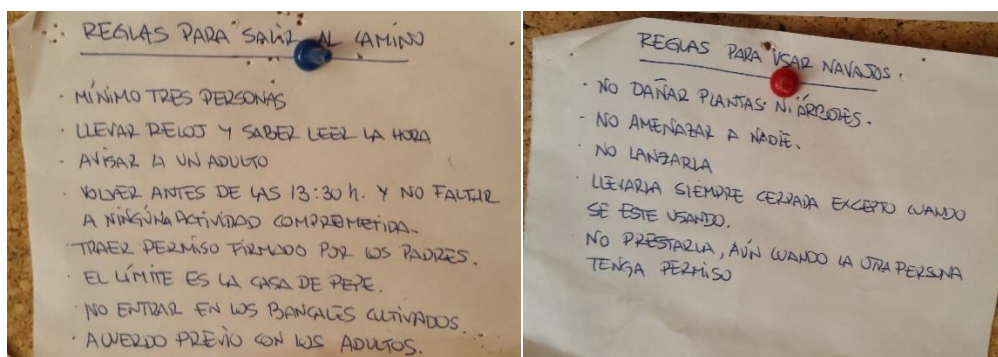 REGLAS PARA SALIR AL CAMINO
· MÍNIMO TRES PERSONAS
· LLEVAR RELOJ Y SABER LEER LA HORA
· AVISAR A UN ADULTO
· VOLVER ANTES DE LAS 13:30 h. Y NO FALTAR
A NINGÚNA ACTIVIDAD COMPROMETIDA.
· TRAER PERMISO FIRMADO POR LOS PADRES.
· EL LÍMITE ES LA CASA DE PEPE.
· NO ENTRAR EN LOS BANCALES CULTIVADOS.
· ACUERDO PREVIO CON LOS ADULTOS.
REGLAS PARA USAR NAVAJAS.
· NO DAÑAR PLANTAS NI ÁRBOLES.
· NO AMENAZAR A NADIE.
· NO LANZARLA
· LLEVARLA SIEMPRE CERRADA EXCEPTO CUANDO
SE ESTE USANDO.
· NO PRESTARLA, AÚN CUANDO LA OTRA PERSONA
TENGA PERMISO